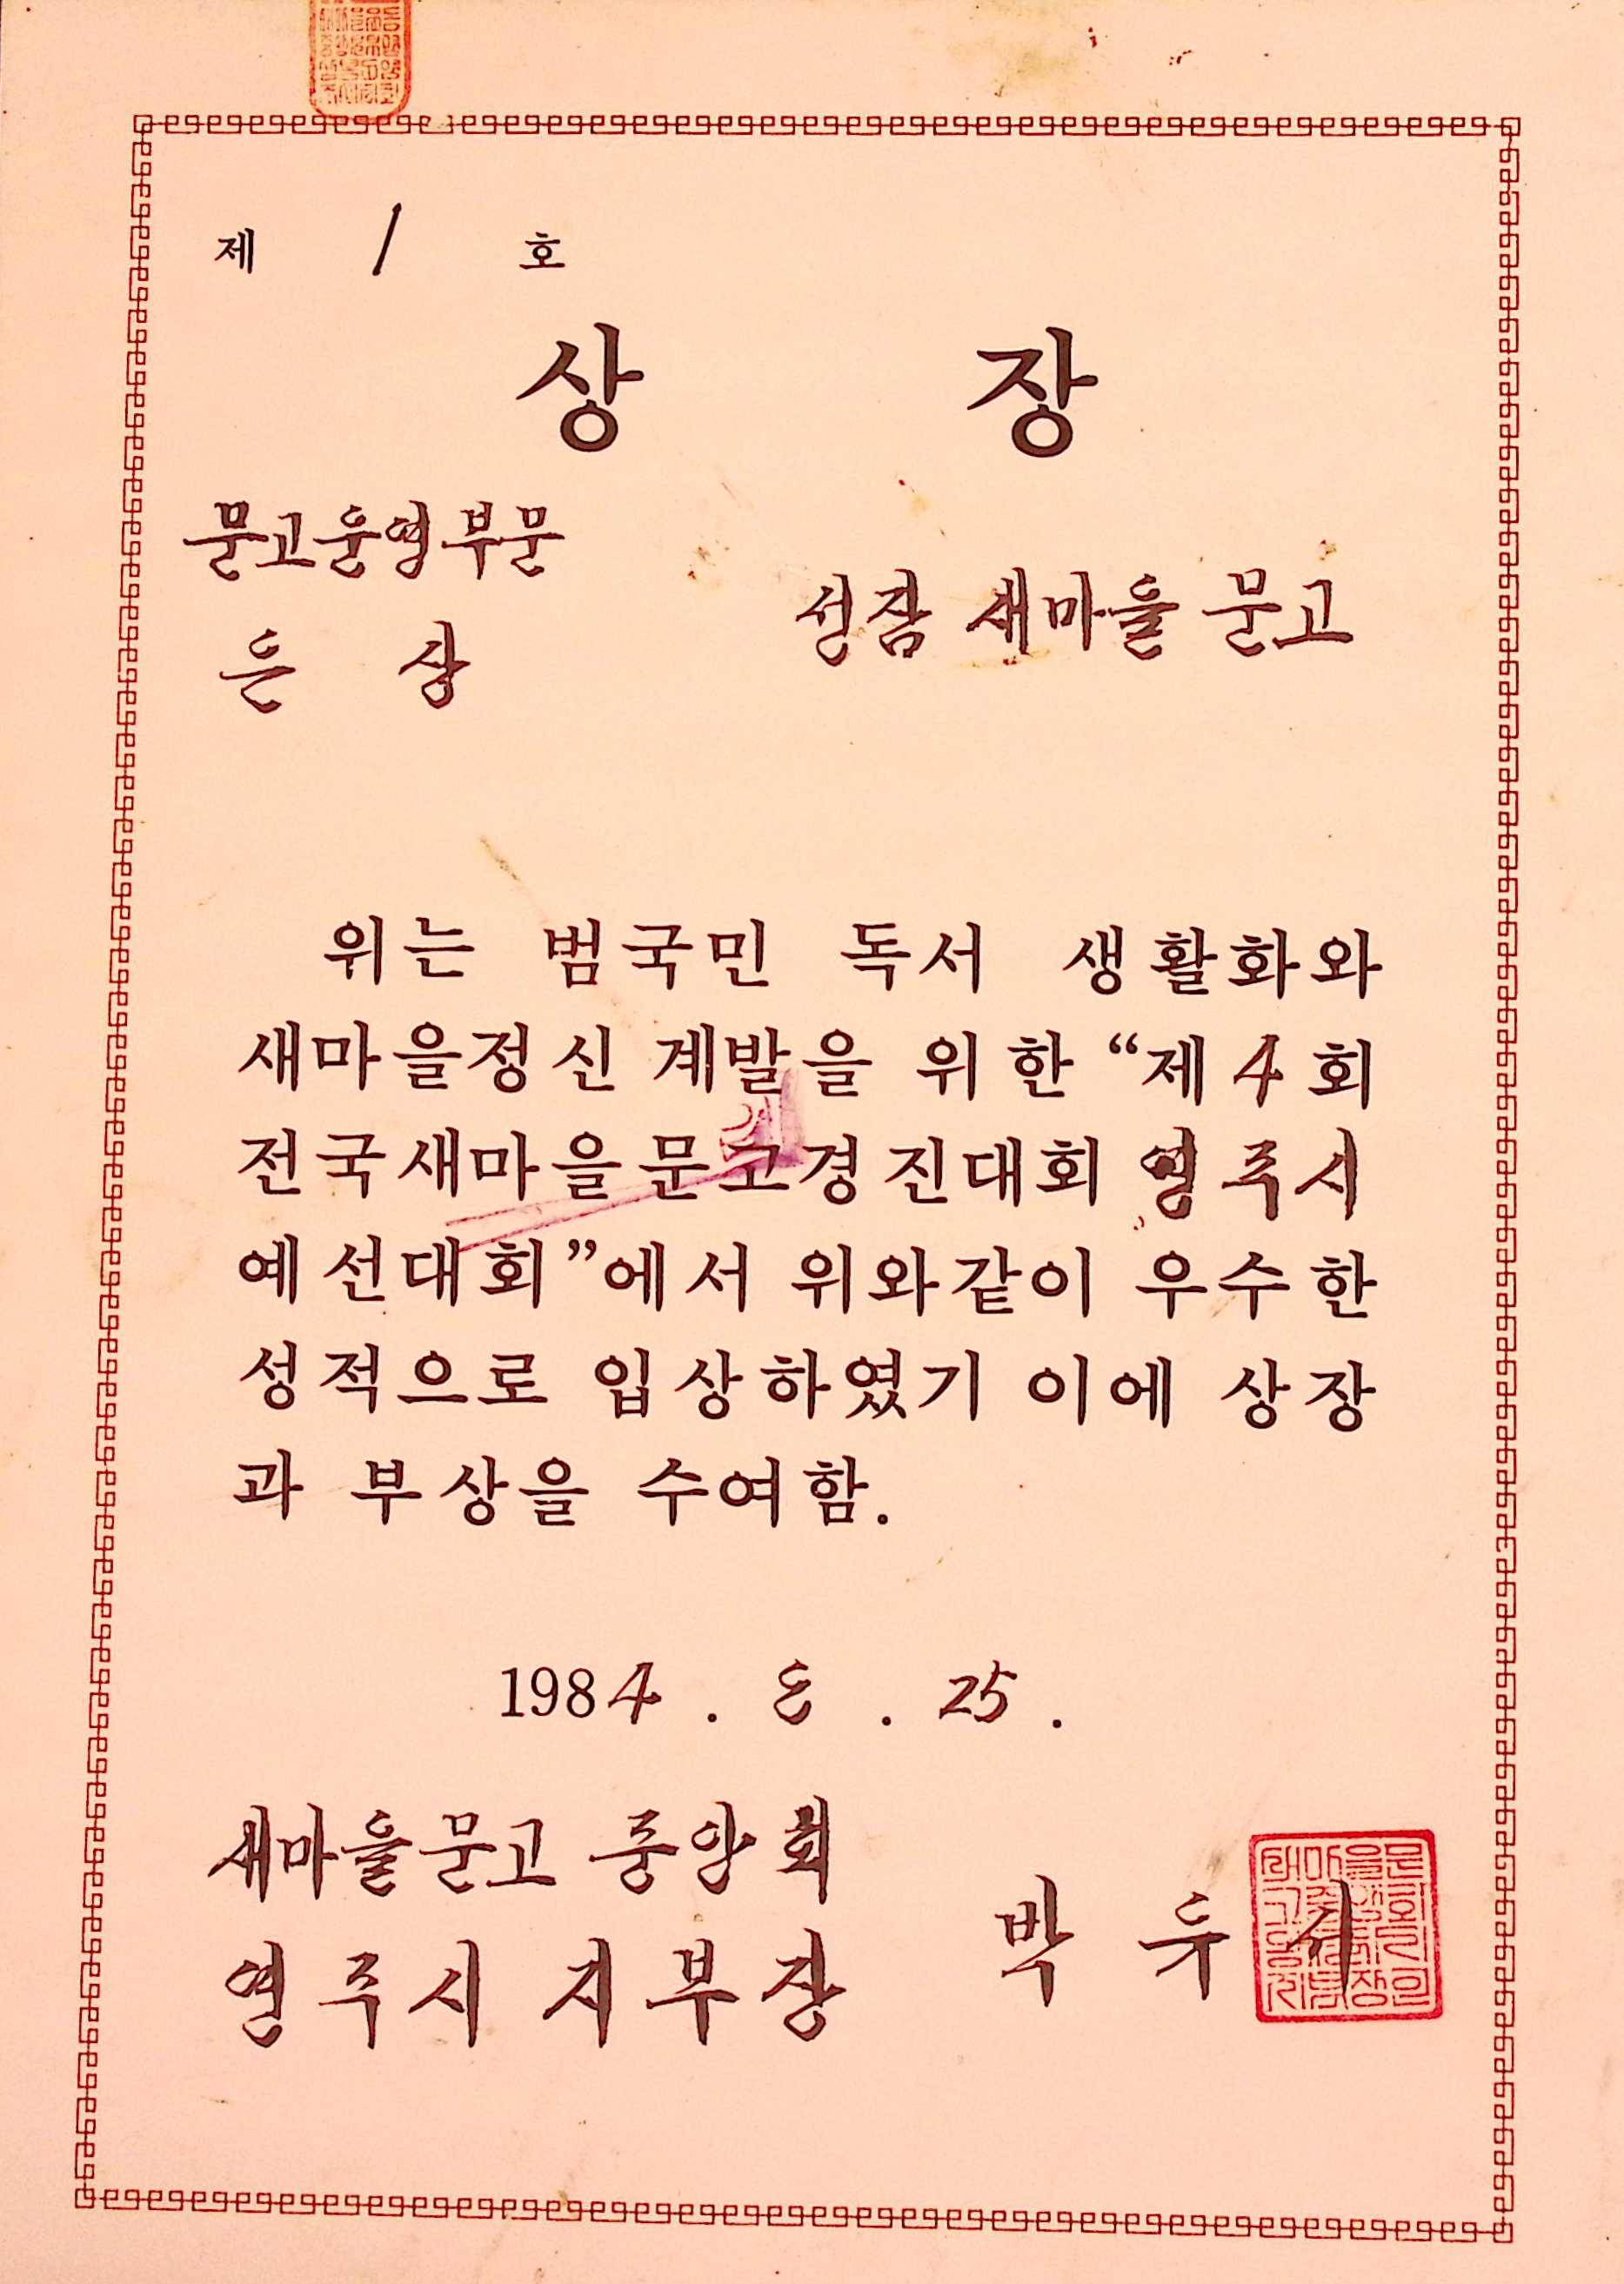 제 1 호
상 장
문고운영부문
은 상
성잠 새마을 문고
위는 범국민 독서 생활화와
새마을정신 계발을 위한 “제 4 회
전국새마을문고경진대회 영주시
예선대회”에서 위와같이 우수한
성적으로 입상하였기 이에 상장
과 부상을 수여함.
1984 . 8 . 25 .
새마을문고 중앙회
영주시 지부장 박 두 서